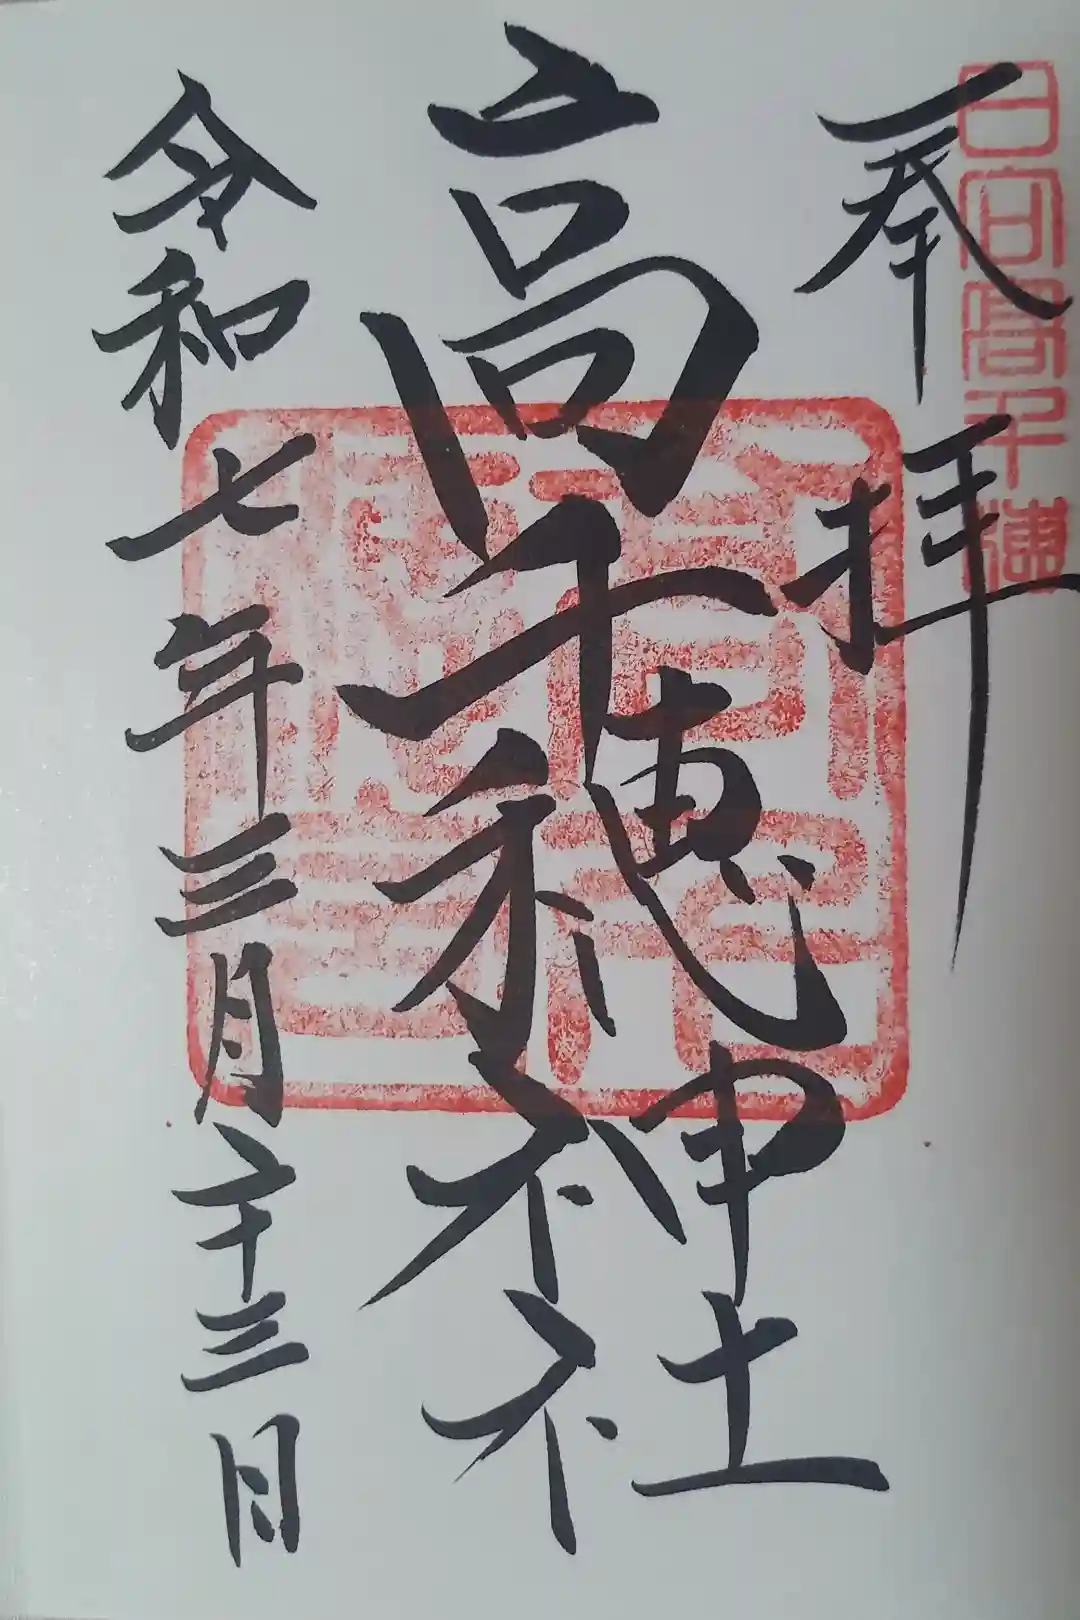 日向高千穂
奉拝
高千穂神社
令和七年三月二十三日